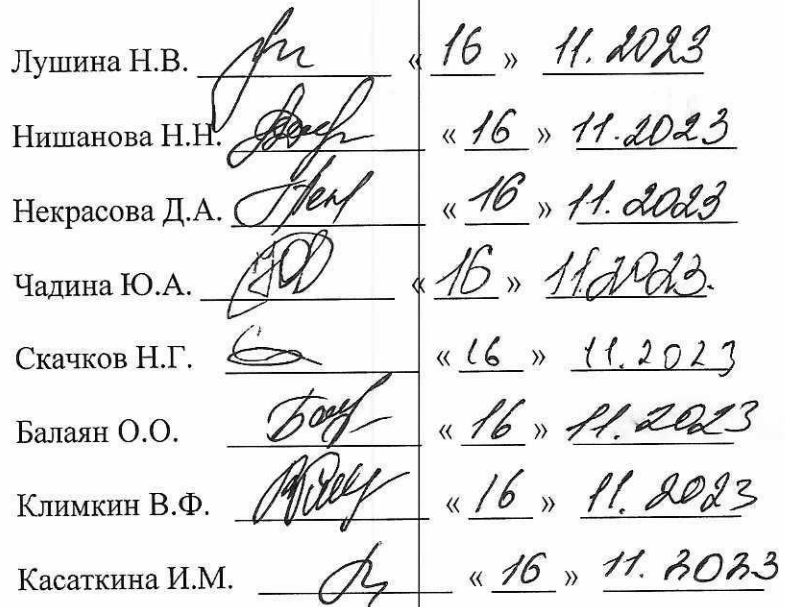 Лушина Н.В. « 16 » 11. 2023
Нишанова Н.Н. « 16 » 11.2023
Некрасова Д.А. « 16 » 11. 2023
Чадина Ю.А. « 16 » 11.2023.
Скачков Н.Г. « 16 » 11.2023
Балаян О.О. « 16 » 11.2023
Климкин В.Ф. « 16 » 11.2023
Касаткина И.М. « 16 » 11.2023